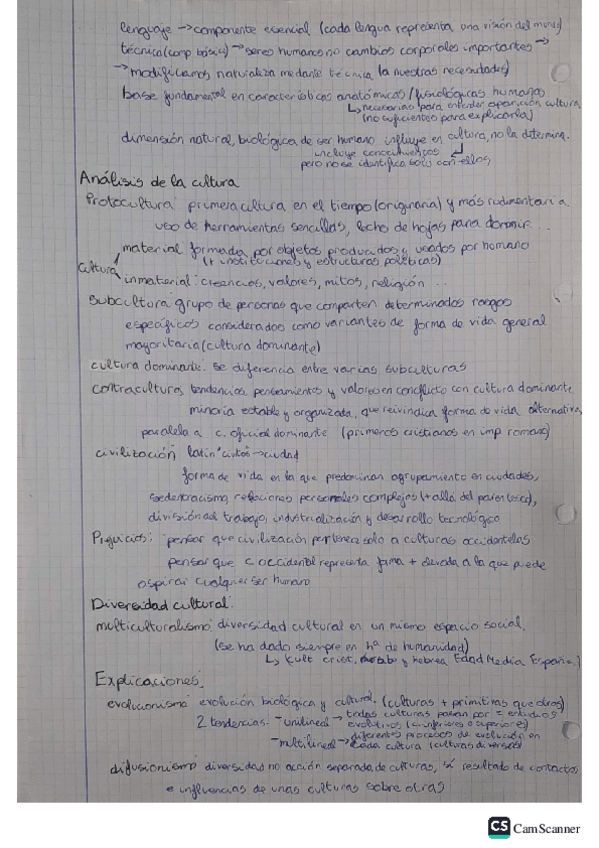 lenguaje → componente esencial (cada lengua representa una visión del mundo)
técnica (comp básico) → seres humanos no cambios corporales importantes →
→ modificamos naturaleza mediante técnica (a nuestras necesidades)
base fundamental en características anatómicas / fisiológicas humanas
↳ necesarias para entender aparición cultura
(no suficientes para explicarla)
dimensión natural, biológica de ser humano influye en cultura, no la determina.
incluye conocimientos
pero no se identifica solo con ellos
Análisis de la cultura
Protocultura: primera cultura en el tiempo (originaria) y más rudimentaria
uso de herramientas sencillas, lecho de hojas para dormir...
material formada por objetos producidos y usados por humano
(+ instituciones y estructuras políticas)
Cultura
inmaterial: creencias, valores, mitos, religión...
Subcultura grupo de personas que comparten determinados rasgos
específicos considerados como variantes de forma de vida general
mayoritaria (cultura dominante)
cultura dominante: se diferencia entre varias subculturas
contracultura, tendencias, pensamientos y valores en conflicto con cultura dominante
minoría estable y organizada, que reivindica forma de vida alternativa,
paralela a c. oficial dominante (primeros cristianos en imp romano)
civilización latín → ciudad
forma de vida en la que predominan agrupamiento en ciudades,
sedentarismo, relaciones personales complejas (+ allá del parentesco),
división del trabajo, industrialización y desarrollo tecnológico
Prejuicios: pensar que civilización pertenece solo a culturas occidentales
pensar que c occidental representa forma + elevada a la que puede
aspirar cualquier ser humano
Diversidad cultural:
multiculturalismo: diversidad cultural en un mismo espacio social.
(se ha dado siempre en hª de humanidad)
↳ Kult crist, y hebrea Edad Media España)
Explicaciones:
evolucionismo evolución biológica y cultural. (culturas + primitivas que otras)
2 tendencias: - unilineal → todas culturas pasan por = estadios
evolutivos (c inferiores o superiores)
- multilineal → diferentes procesos de evolución en
cada cultura (culturas diversas)
difusionismo diversidad no acción separada de culturas, sí resultado de contactos
e influencias de unas culturas sobre otras
CS CamScanner